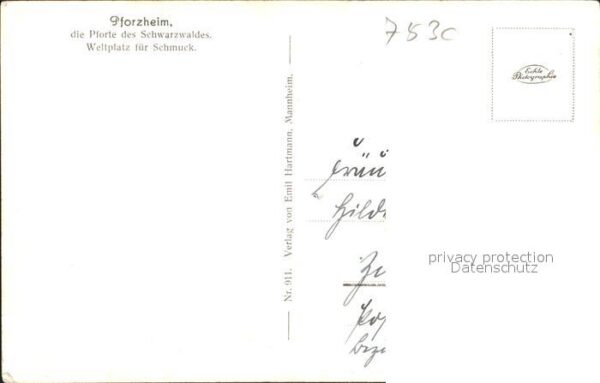 Pforzheim,
die Pforte des Schwarzwaldes.
Weltplatz für Schmuck.
753c
Echte
Photographie
Nr. 911. Verlag von Emil Hartmann, Mannheim.
Hilde
privacy protection
Datenschutz